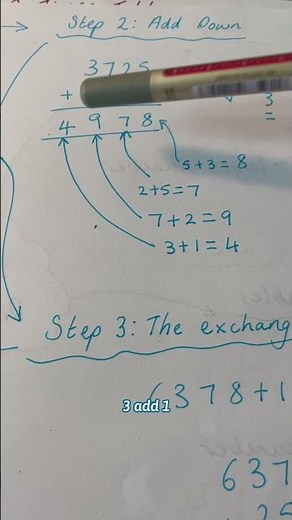 Step 2: Add Down
3725
+
4978
5+3=8
2+5=7
7+2=9
3+1=4
3
=
Step 3: The exchang
6378+1
3 add 1
637
25